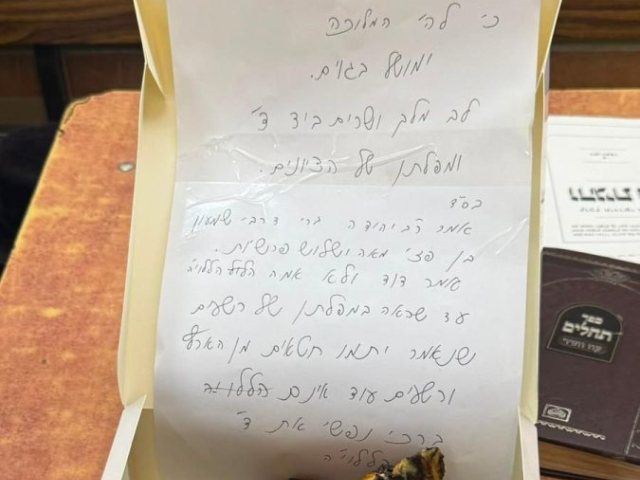 כי לה' המלוכה
ומושל בגוים.
לב מלך ושרים ביד ד'
ומפלתן של הציונים.
בס"ד
אמר ר' יהודה ברי' דרבי שמעון
בן פזי מאה ושלוש פרשיות
אמר דוד ולא אמר הללוי'ה
עד שראה במפלתן של רשעים
שנאמר יתמו חטאים מן הארץ
ורשעים עוד אינם
ברכי נפשי את ד'
הללוי'ה
ספר
תהלים